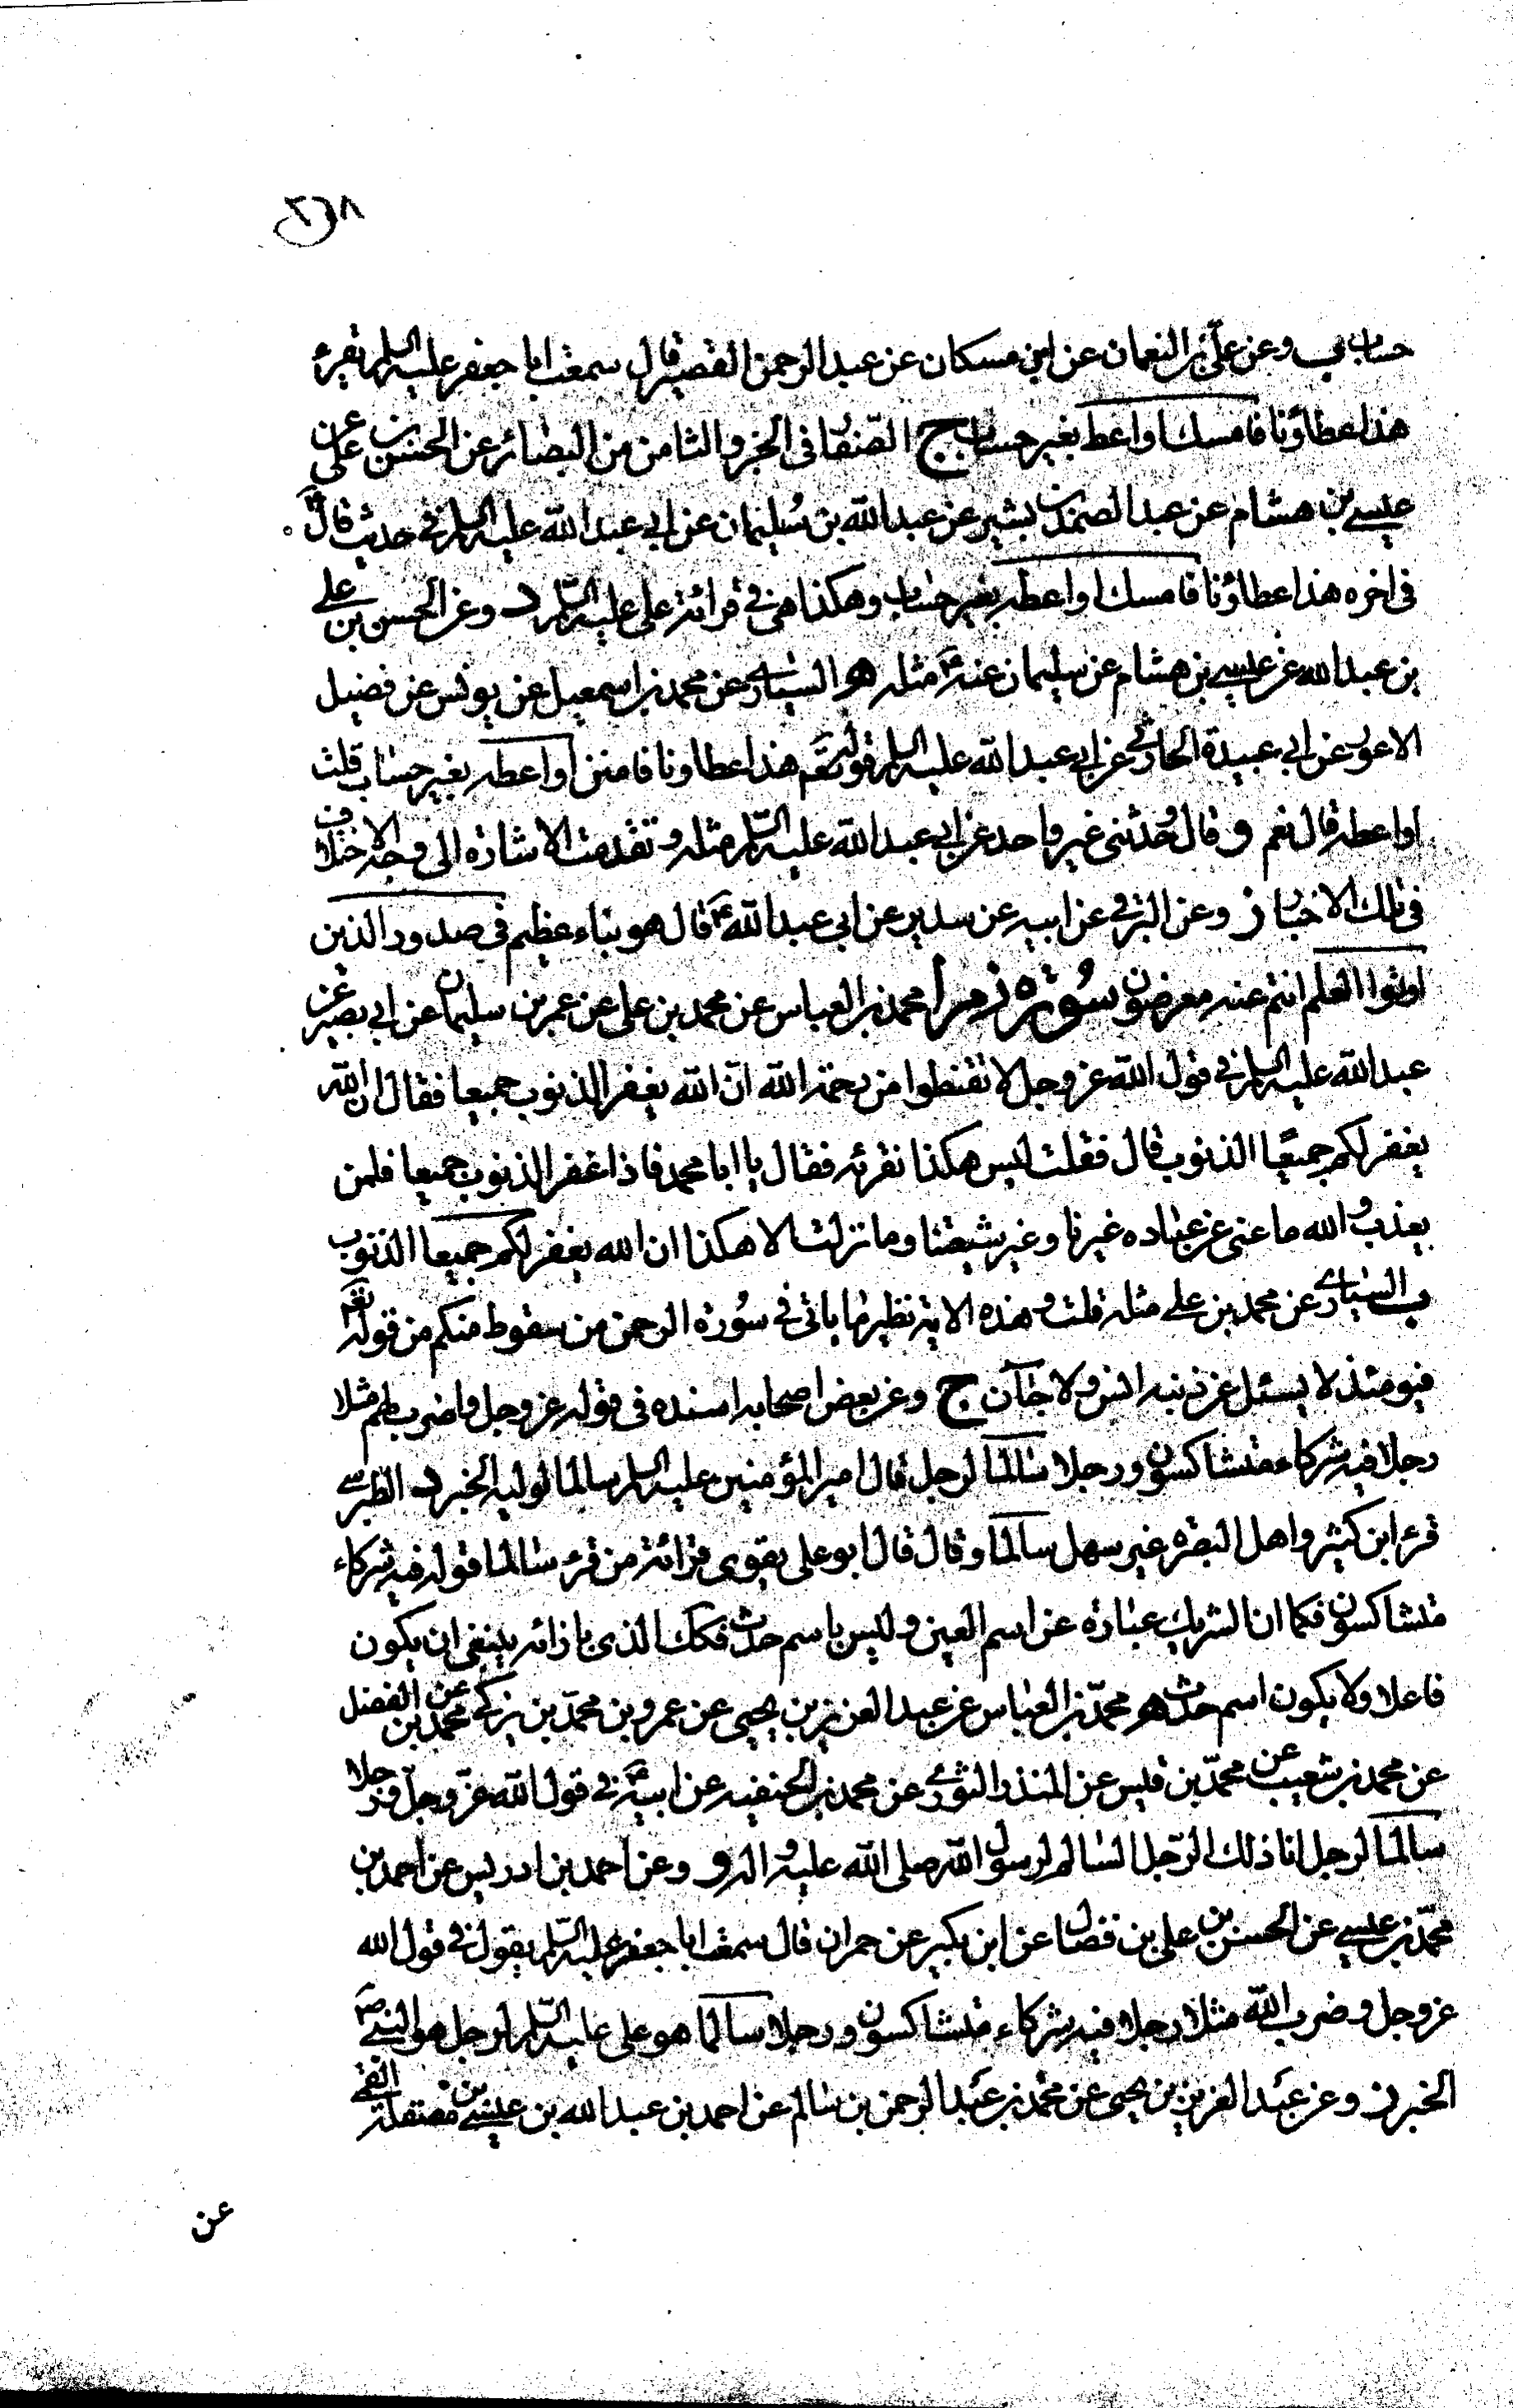 حساب ب وعن علي بن النعمان عن ابن مسكان عن عبد الرحمن القصير قال سمعت ابا جعفر عليه السلم يقرء
هذا عطاؤنا فامسك او اعط بغير حساب ج الصفار في الجزو الثامن من البصائر عن الحسن بن علي عن
عيسى بن هشام عن عبد الصمد بن بشير عن عبد الله بن سليمان عن ابي عبد الله عليه السلم في حديث قال
في اخره هذا عطاؤنا فامسك او اعطه بغير حساب وهكذا هي في قرائة علي عليه السلم د وعن الحسن بن علي
بن عبد الله عن عيسى بن هشام عن سليمان عنه ع مثله هـ السياري عن محمد بن اسمعيل عن يونس عن فضيل
الاعور عن ابي عبيدة الحذاء عن ابي عبد الله عليه السلم قوله تعالى هذا عطاونا فامنن او اعطه بغير حساب قلت
او اعطه قال نعم و قال حدثني غير واحد عن ابي عبد الله عليه السلم مثله وتقدمت الاشارة الى وجه الاختلاف
في تلك الاخبار ز وعن البرقي عن ابيه عن سدير عن ابي عبد الله ع قال هو بناء عظيم في صدور الذين
اوتوا العلم انتم عنه معرضون سورة زمر ا محمد بن العباس عن محمد بن علي عن عمر بن سليمان عن ابي بصير عن
عبد الله عليه السلم في قول الله عز وجل لا تقنطوا من رحمة الله ان الله يغفر الذنوب جميعا فقال ان الله
يغفر لكم جميعا الذنوب قال فقلت ليس هكذا نقرئه فقال يا ابا محمد فاذا غفر الذنوب جميعا فلمن
يعذب و الله ما عنى عن عباده غيرنا وغير شيعتنا وما نزلت الا هكذا ان الله يغفر لكم جميعا الذنوب
ب السياري عن محمد بن علي مثله قلت و هذه الاية نظير ما ياتي في سورة الرحمن من سقوط منكم من قوله تعالى
فيومئذ لا يسئل عن ذنبه انس ولا جان ج وعن بعض اصحابه اسنده في قوله عز وجل واضرب لهم مثلا
رجلا فيه شركاء متشاكسون ورجلا سالما لرجل قال امير المؤمنين عليه السلم سالما لوليه الخبر د الطبرسي
قرء ابن كثير واهل البصره غير سهل سالما وقال قال ابو علي يقوى قرائة من قرء سالما قوله فيه شركاء
متشاكسون فكما ان الشريك عبارة عن اسم العين وليس باسم حدث فكك الذي بازائه ينبغي ان يكون
فاعلا ولا يكون اسم حدث هـ محمد بن العباس عن عبد العزيز بن يحيى عن عمرو بن محمد بن تركي عن محمد بن الفضل
عن محمد بن شعيب عن محمد بن قيس عن المنذر الثوري عن محمد بن الحنفيه عن ابيه ع في قول الله عز وجل ورجلا
سالما لرجل انا ذلك الرجل السالم لرسول الله صلى الله عليه واله و وعن احمد بن ادريس عن احمد بن
محمد بن عيسى عن الحسن بن علي بن فضال عن ابن بكير عن حمران قال سمعت ابا جعفر عليه السلم يقول في قول الله
عز وجل وضرب الله مثلا رجلا فيه شركاء متشاكسون ورجلا سالما هو علي عليه السلم لرجل هو النبي ص
الخبر ز وعن عبد العزيز بن يحيى عن محمد بن عبد الرحمن بن سالم عن احمد بن عبد الله بن عيسى بن مصقلة القمي
عن